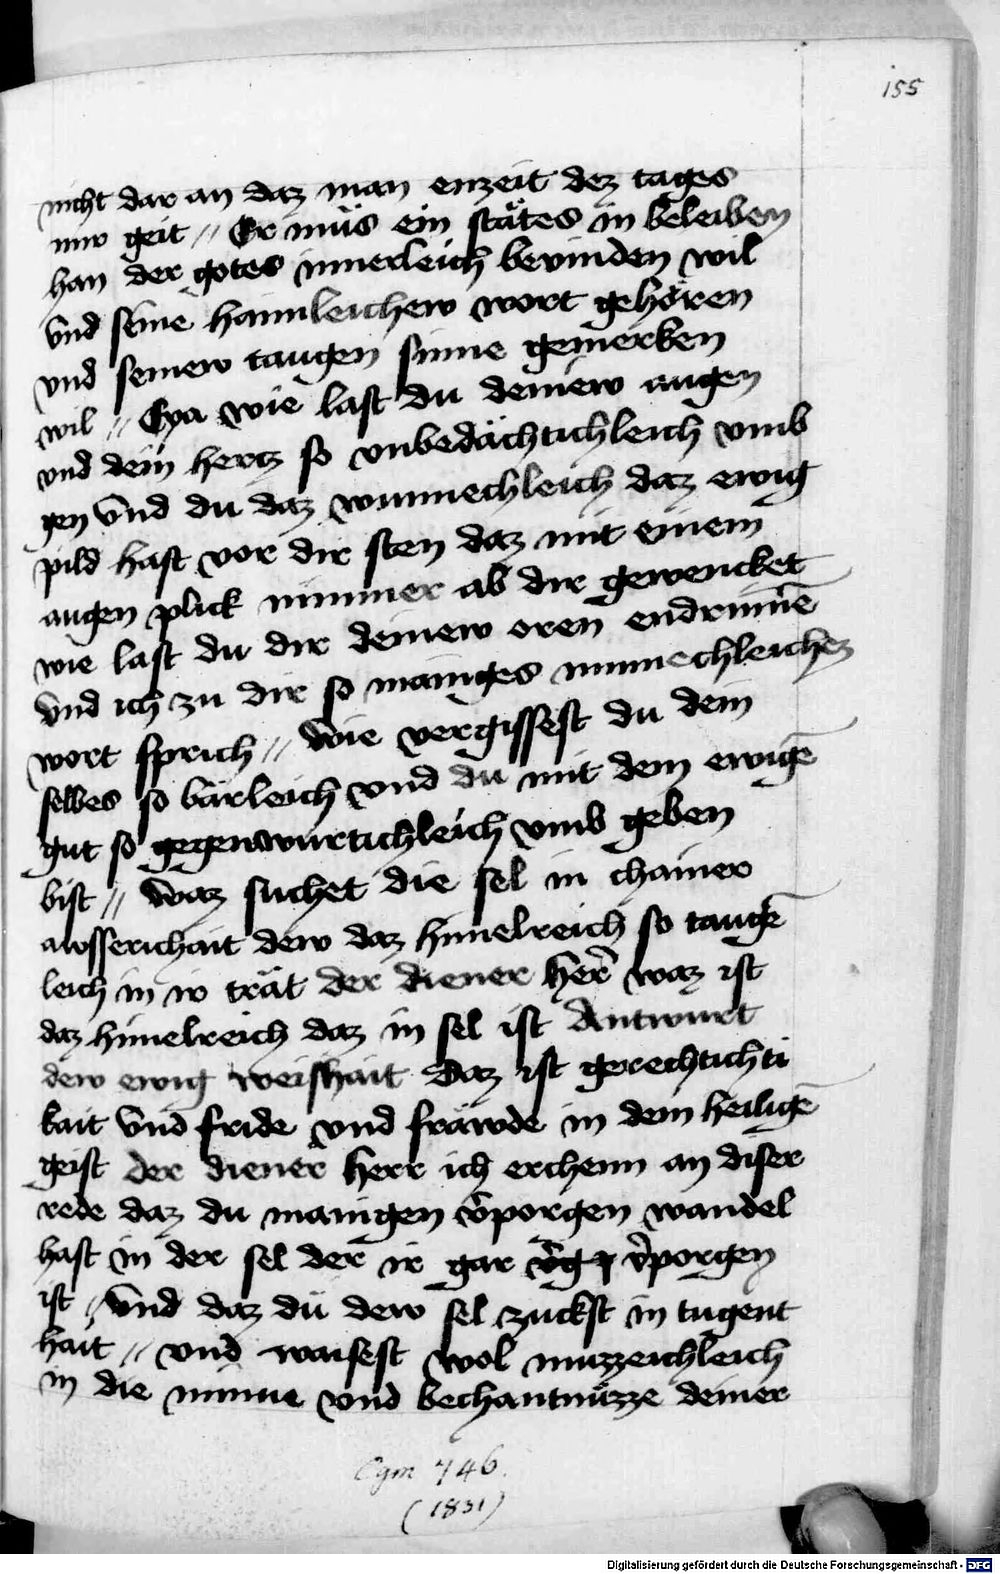 155
nicht dar an daz man enzeit dez tages
mir geit // Er muͦs ein staͤtes in beleiben
han der gotes innerleich bevinden wil
vnd seine haimleichew wort gehoͤren
vnd seinew taugen sinne gemerken
wil // Eya wie last du deinew augen
vnd dein hertz so vnbedaͤchtichleich vmb
gen vnd du daz wunnechleich daz ewig
pild hast vor dir sten daz mit einem
augen plick nimmer ab dir gewencket
wie last du dir deinew oren endrinnē
vnd ich zu dir so maniges minnechleichez
wort sprich // Wie vergissest du dein
selbes so barleich vnd du mit dem ewigē
gut so gegenwurtichleich vmb geben
bist // Waz suchet die sel in chainer
awsserichait dew daz himelreich so taugē
leich in ir traͤt der diener her̄ waz ist
daz himelreich daz in sel ist Antwurt
dew ewig weishait Daz ist gerechtichti
kait vnd fride vnd fraͤwde in dem heiligē
geist der diener herr ich erchenn an diser
rede daz du manigen v̄porgen wandel
hast in der sel der ir gar v̄porgen
ist // vnd daz du dew sel zuckst in tugent
hait // vnd waisest wol muzzeichleich
in die minne vnd bechantnuͤzze deiner
Cgm 746.
(1831)
Digitalisierung gefördert durch die Deutsche Forschungsgemeinschaft - DFG